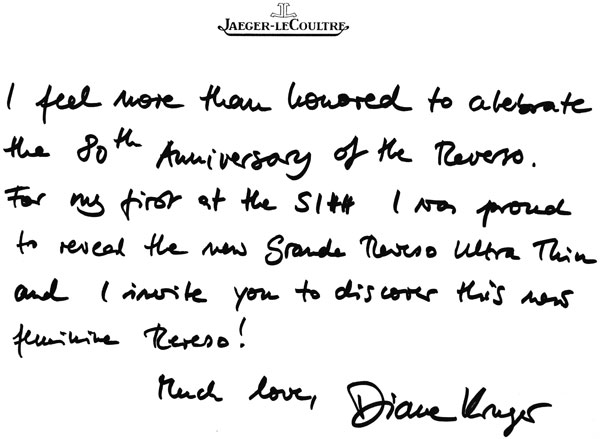 JAEGER-LECOULTRE
I feel more than honored to celebrate
the 80th Anniversary of the Reverso.
For my first at the SIHH I was proud
to reveal the new Grande Reverso Ultra Thin
and I invite you to discover this new
feminine Reverso!
Much love, Diane Kruger